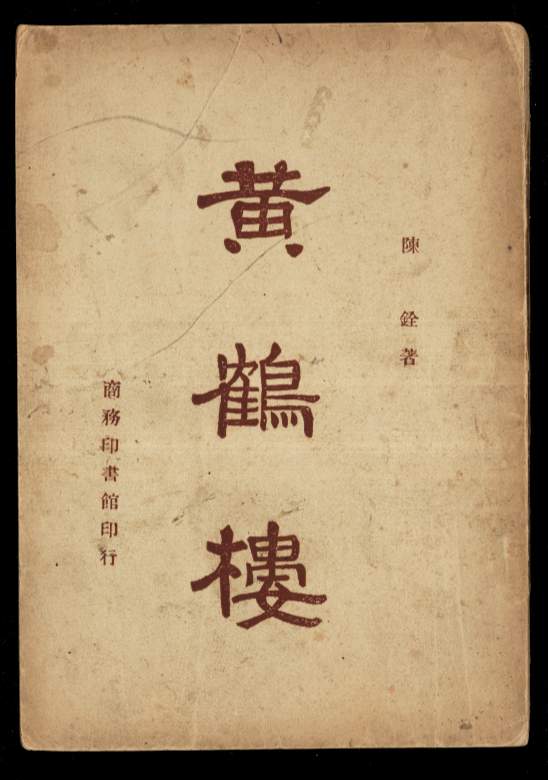 陳銓著
黄鶴樓
商務印書館印行